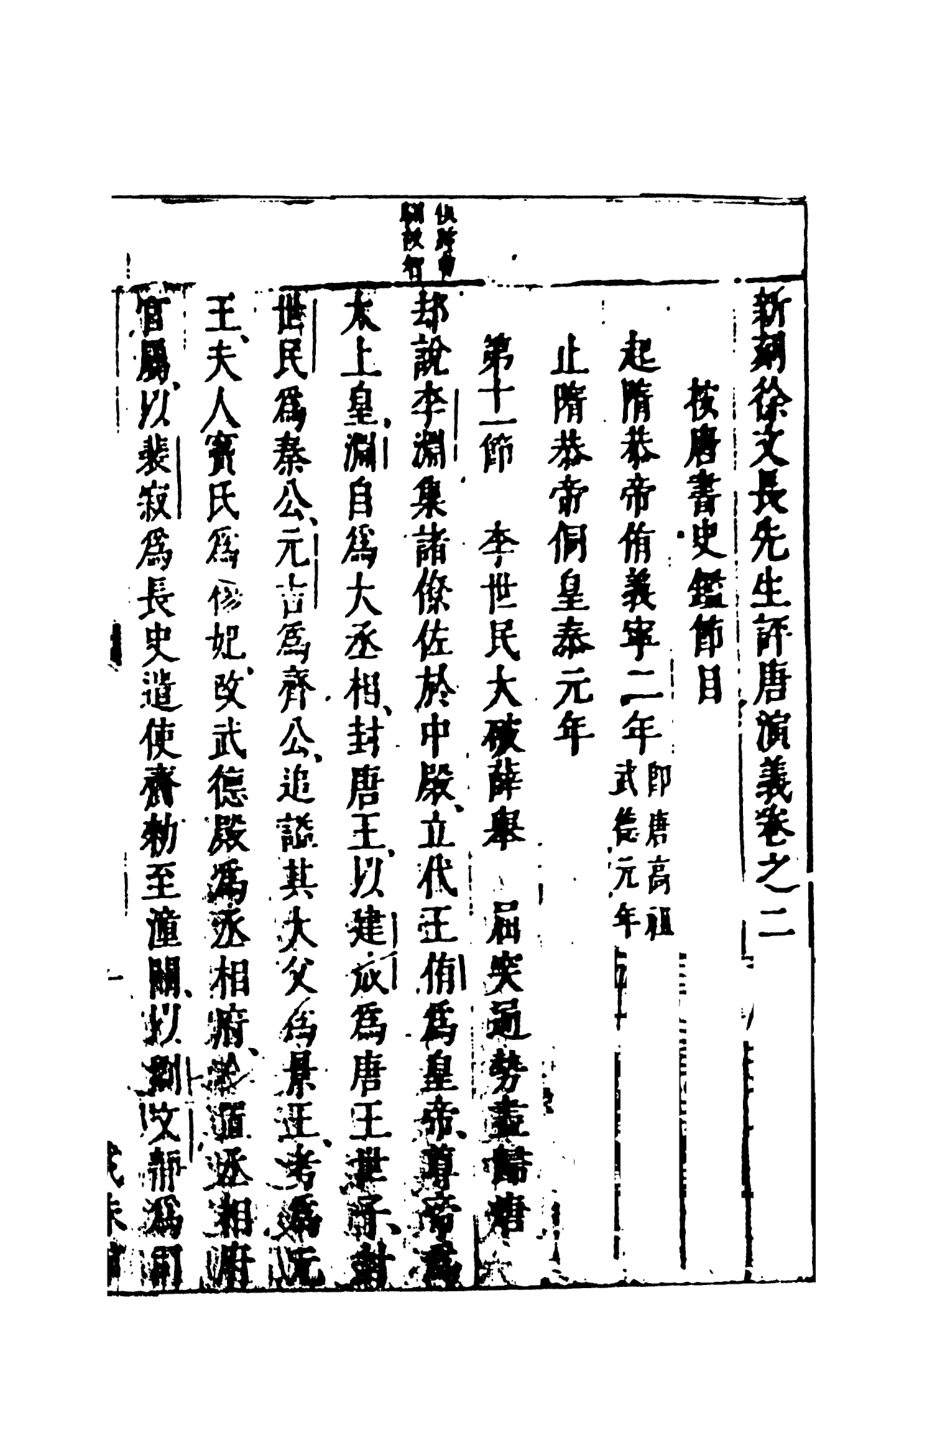 新刻徐文長先生評唐演義卷之二
按唐書史鑑節目
起隋恭帝侑義寧二年即唐高祖武德元年
止隋恭帝侗皇泰元年
第十一節　李世民大破薛舉　屈突通勢盡歸唐
却說李淵集諸僚佐於中殿、立代王侑爲皇帝、尊帝爲
太上皇、淵自爲大丞相、封唐王、以建成爲唐王世子、封
世民爲秦公、元吉爲齊公、追諡其大父爲景王、考爲元
王、夫人竇氏爲穆妃、改武德殿爲丞相府、丞相府
官屬、以裴寂爲長史遣使齎勑至潼關、以劉文靜爲司